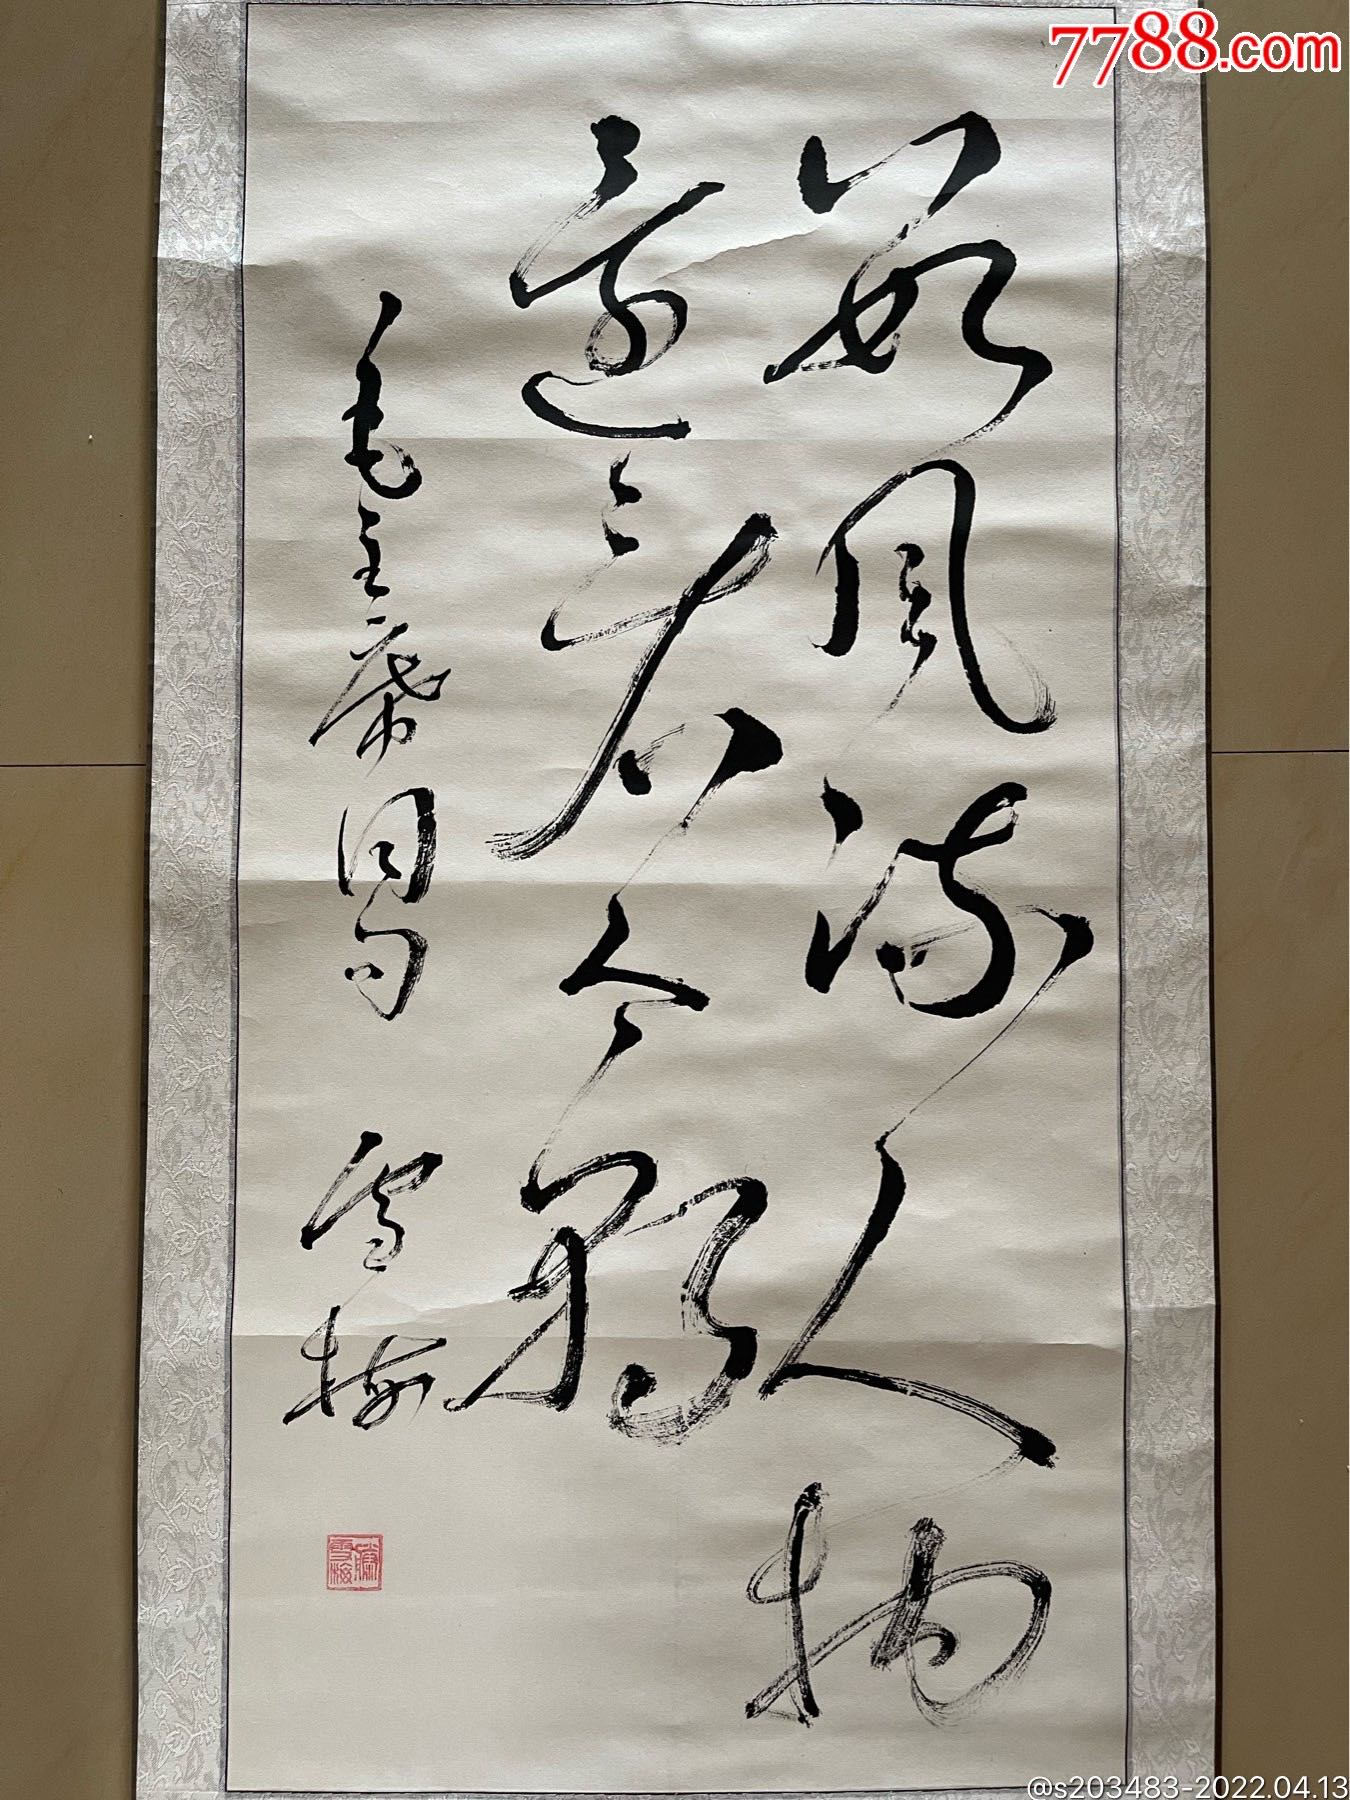 7788.com
数风流人物
还看今朝
毛主席词句 雪梅
@s203483-2022.04.13